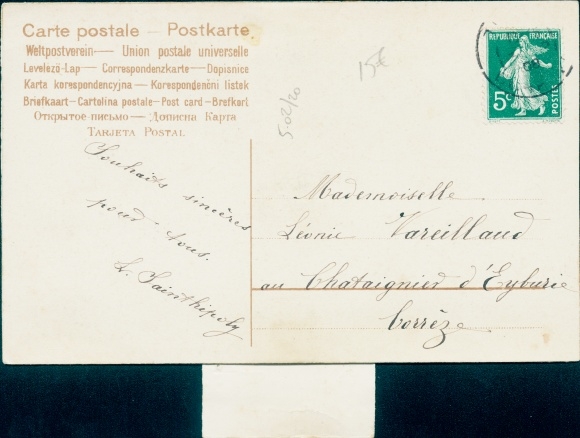 Carte postale — Postkarte
Weltpostverein — Union postale universelle
Levelező-Lap — Correspondenzkarte — Dopisnice
Karta korespondencyjna — Korespondenční lístek
Briefkaart — Cartolina postale — Post card — Brefkort
Открытое письмо — Дописна Карта
TARJETA POSTAL
15€
5.02/20
REPUBLIQUE FRANÇAISE
5c
POSTES
Souhaits sincères
pour tous.
Mademoiselle
Léonie Vareillaud
au Chataignier d'Eyburie
Corrèze